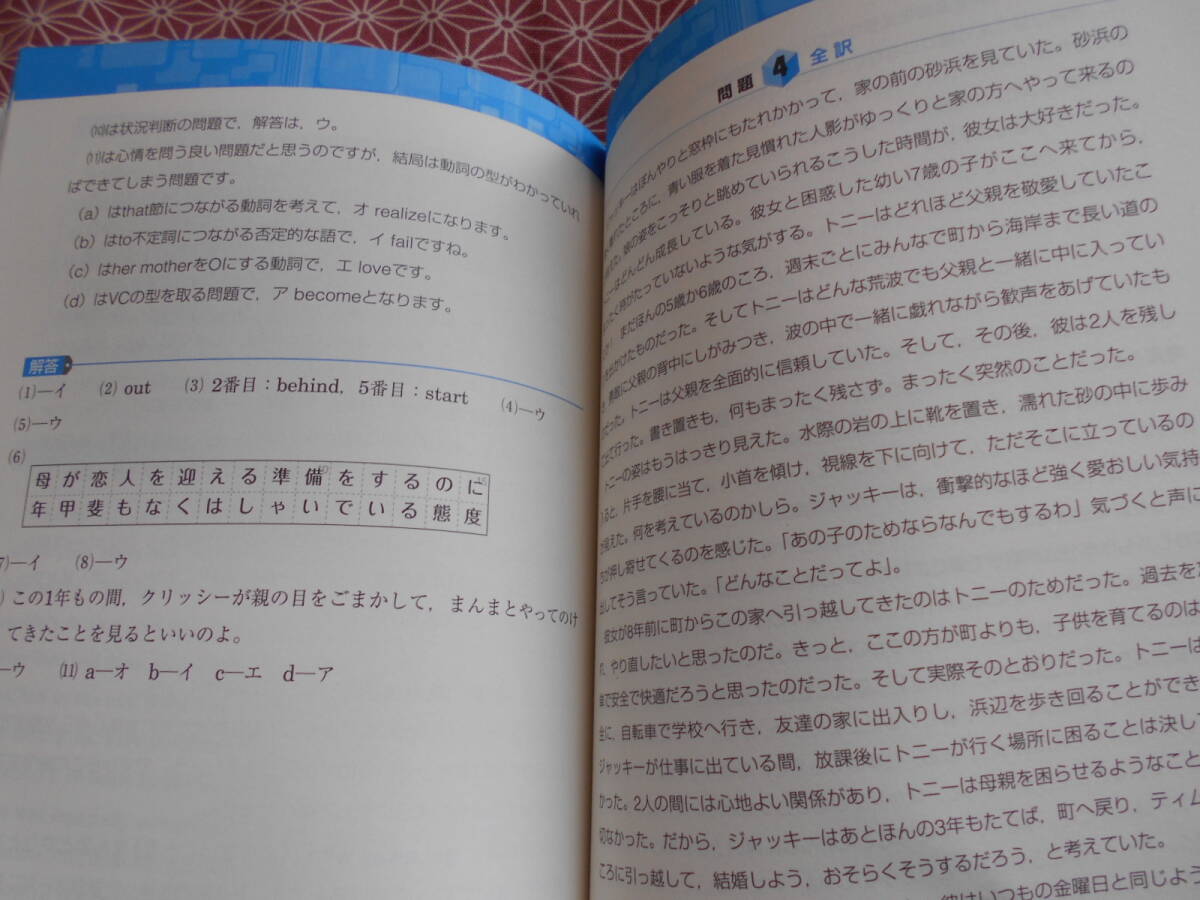 ⑽は状況判断の問題で，解答は，ウ。
⑾は心情を問う良い問題だと思うのですが，結局は動詞の型がわかっていれ
ばできてしまう問題です。
（a）はthat節につながる動詞を考えて，オ realizeになります。
（b）はto不定詞につながる否定的な語で，イ failですね。
（c）はher motherをOにする動詞で，エ loveです。
（d）はVCの型を取る問題で，ア becomeとなります。
解答
⑴―イ ⑵ out ⑶ 2番目：behind，5番目：start ⑷―ウ
⑸―ウ
⑹
母が恋人を迎える準備をするのに
年甲斐もなくはしゃいでいる態度
―イ ⑻―ウ
この1年もの間，クリッシーが親の目をごまかして，まんまとやってのけ
てきたことを見るといいのよ。
―ウ ⑾ a―オ b―イ c―エ d―ア
問題 4 全訳
はぼんやりと窓枠にもたれかかって，家の前の砂浜を見ていた。砂浜の
たところに，青い服を着た見慣れた人影がゆっくりと家の方へやって来るの
娘の姿をこっそりと眺めていられるこうした時間が，彼女は大好きだった。
はどんどん成長している。彼女と困惑した幼い7歳の子がここへ来てから，
く時がたっていないような気がする。トニーはどれほど父親を敬愛していたこ
まだほんの5歳か6歳のころ，週末ごとにみんなで町から海岸まで長い道の
出かけたものだった。そしてトニーはどんな荒波でも父親と一緒に中に入ってい
に父親の背中にしがみつき，波の中で一緒に戯れながら歓声をあげていたも
だった。トニーは父親を全面的に信頼していた。そして，その後，彼は2人を残し
て行った。書き置きも，何もまったく残さず。まったく突然のことだった。
トニーの姿はもうはっきり見えた。水際の岩の上に靴を置き，濡れた砂の中に歩み
ると，片手を腰に当て，小首を傾け，視線を下に向けて，ただそこに立っているの
見えた。何を考えているのかしら。ジャッキーは，衝撃的なほど強く愛おしい気持
ちが押し寄せてくるのを感じた。「あの子のためならなんでもするわ」気づくと声に
出してそう言っていた。「どんなことだってよ」。
彼女が8年前に町からこの家へ引っ越してきたのはトニーのためだった。過去を
れ，やり直したいと思ったのだ。きっと，ここの方が町よりも，子供を育てるのは
単で安全で快適だろうと思ったのだった。そして実際そのとおりだった。トニーは
全に，自転車で学校へ行き，友達の家に出入りし，浜辺を歩き回ることができ
ジャッキーが仕事に出ている間，放課後にトニーが行く場所に困ることは決して
かった。2人の間には心地よい関係があり，トニーは母親を困らせるようなこと
切なかった。だから，ジャッキーはあとほんの3年もたてば，町へ戻り，ティム
ころに引っ越して，結婚しよう，おそらくそうするだろう，と考えていた。
彼はいつもの金曜日と同じよう